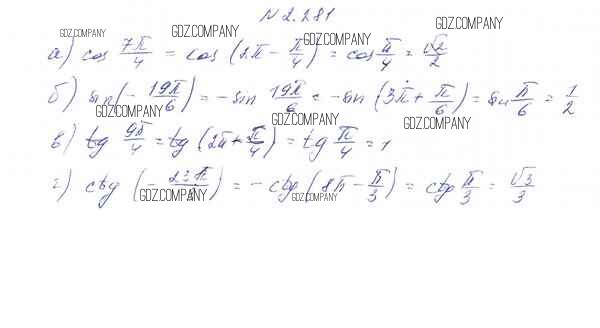 N 2.281
GDZ.COMPANY GDZ.COMPANY GDZ.COMPANY GDZ.COMPANY
а) cos 7π/4 = cos (2π - π/4) = cos π/4 = √2/2
б) sin(- 19π/6) = - sin 19π/6 = - sin (3π + π/6) = sin π/6 = 1/2
GDZ.COMPANY GDZ.COMPANY GDZ.COMPANY
в) tg 9π/4 = tg (2π + π/4) = tg π/4 = 1
г) ctg (- 23π/) = - ctg (8π - π/3) = ctg π/3 = √3/3
GDZ.COMPANY GDZ.COMPANY